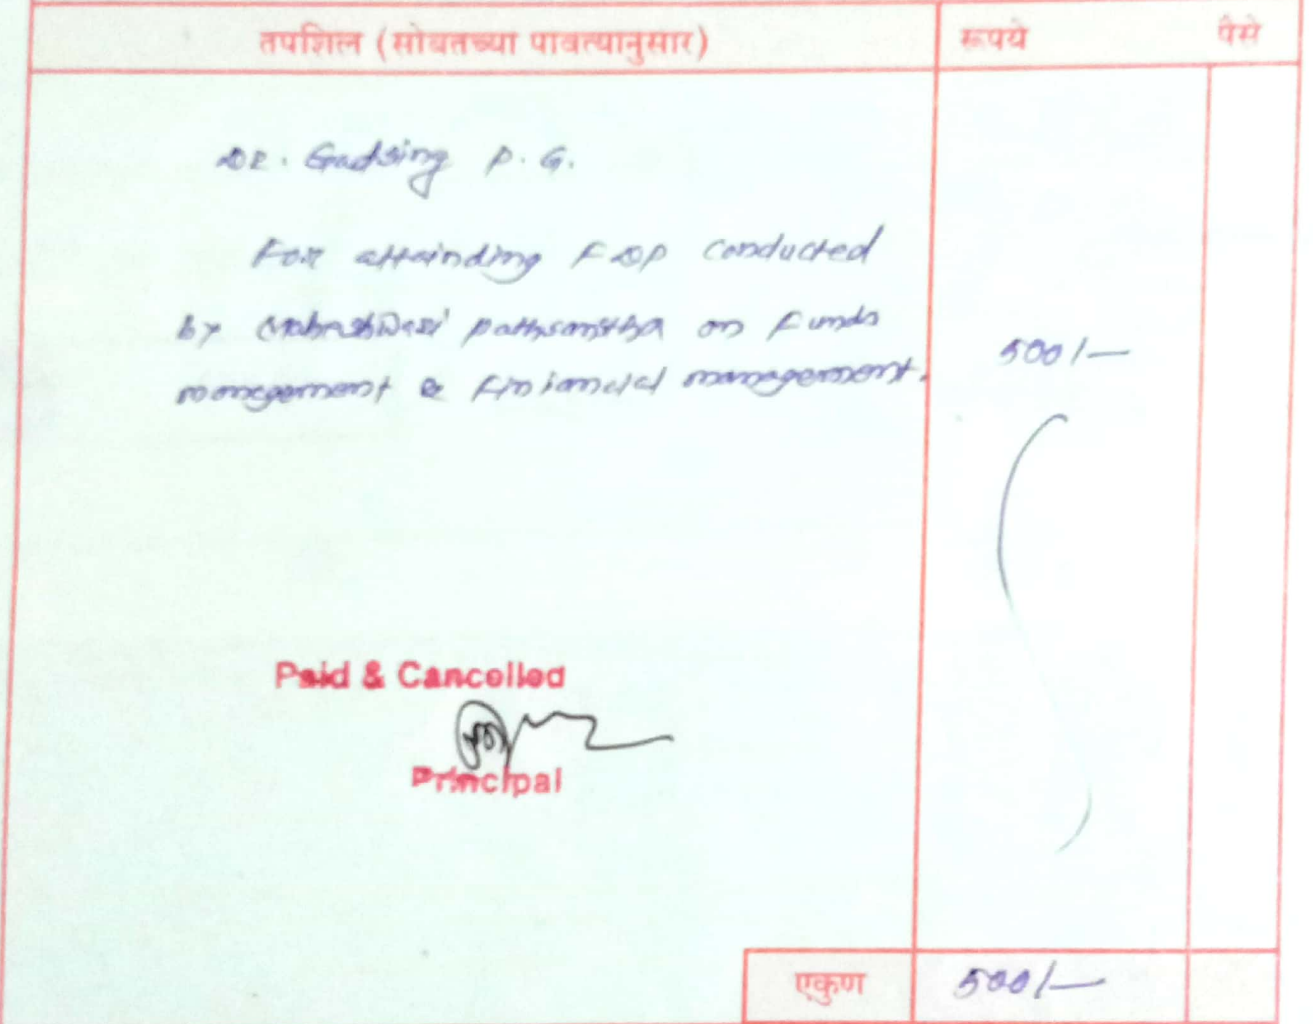 तपशिल (सोबतच्या पावत्यानुसार) रूपये पैसे
DR. Gadsing P. G.
For attainding FDP conducted
by Maheshwari pathsanstha on Funds
management & Finiancial management. 500/-
Paid & Cancelled
Principal
एकुण 500/-